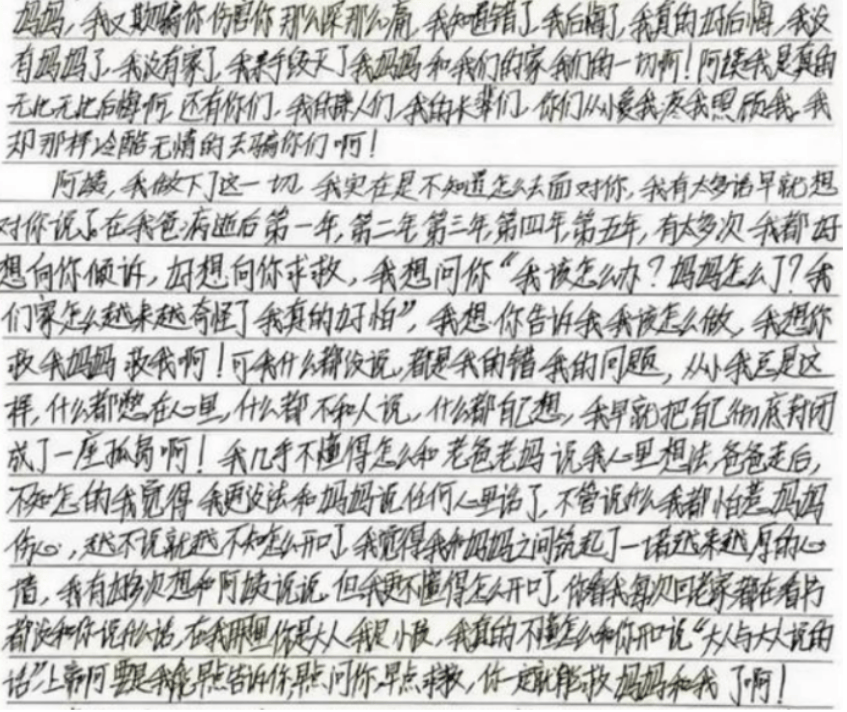 妈妈，我又欺骗你伤害你那么深那么痛，我知道错了，我后悔了，我真的好后悔，我没
有妈妈了，我没有家了，我亲手毁灭了我妈妈和我们的家我们的一切啊！阿姨我是真的
无比无比后悔啊，还有你们，我的家人们，我的长辈们，你们从小爱我疼我照顾我，我
却那样冷酷无情的去骗你们啊！
阿姨，我做下了这一切，我实在是不知道怎么去面对你，我有太多话早就想
对你说了。在我爸病逝后第一年，第二年，第三年，第四年，第五年，有太多次我都好
想向你倾诉，好想向你求救，我想问你“我该怎么办？妈妈怎么了？我
们家怎么越来越奇怪了我真的好怕”，我想你告诉我我该怎么做，我想你
救我妈妈救我啊！可我什么都没说，都是我的错我的问题，从小我总是这
样，什么都憋在心里，什么都不和人说，什么都自己想，我早就把自己彻底封闭
成了一座孤岛啊！我几乎不懂得怎么和老爸老妈说我心里想法，爸爸走后，
不知怎的我觉得我更没法和妈妈说任何心里话了，不管说什么我都怕惹妈妈
伤心，越不说就越不知怎么开口了，我觉得我和妈妈之间筑起了一堵越来越厚的心
墙，我有好多次想和阿姨说说，但我更不懂得怎么开口了，你看我每次回老家都在看书
都没和你说什么话，在我那里你是大人我是小孩，我真的不懂怎么和你开口说“大人与大人说的
话”上帝啊要是我能早点告诉你，早点问你，早点求救，你一定就能救妈妈和我了啊！